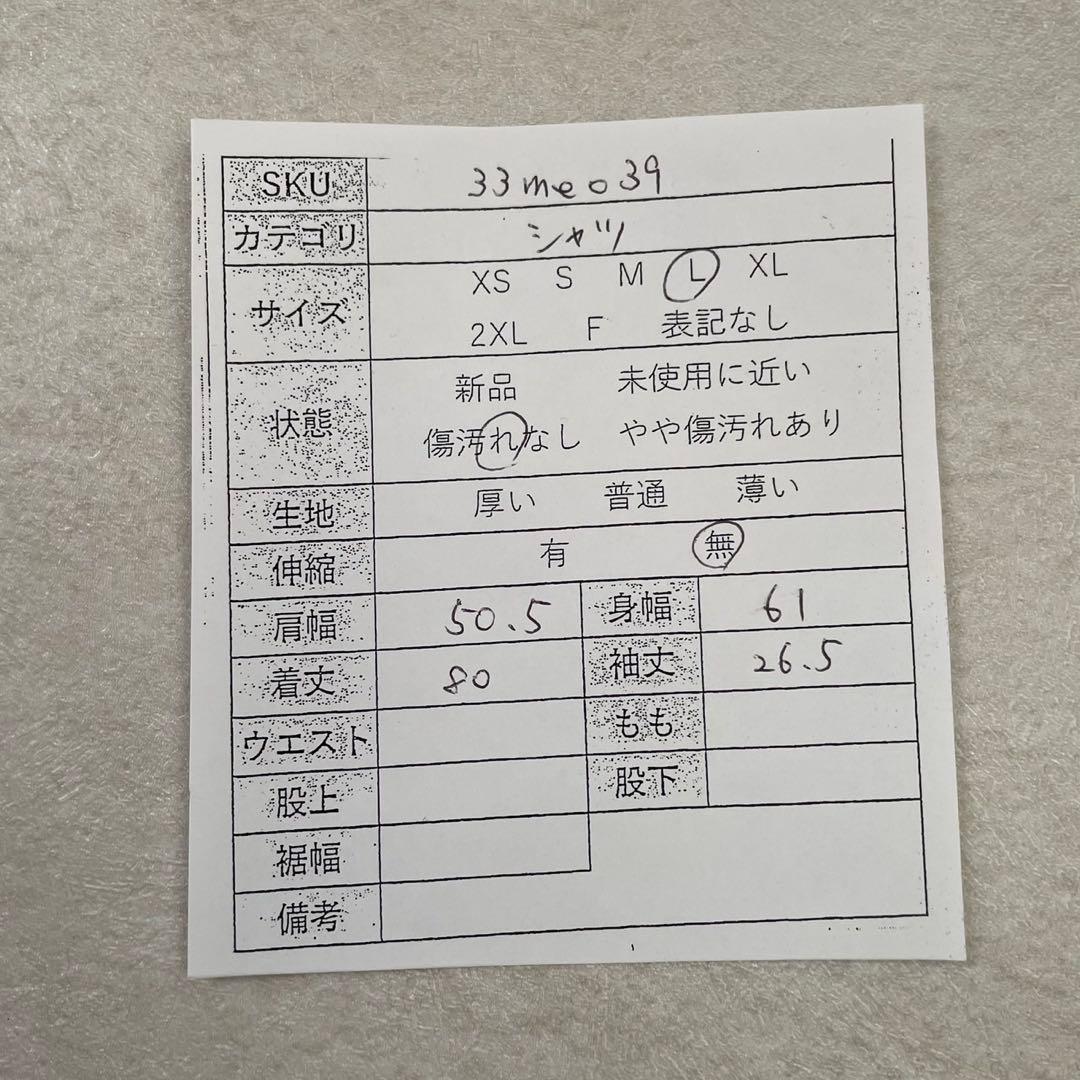 SKU 33meo39
カテゴリ シャツ
サイズ XS S M L XL
2XL F 表記なし
状態 新品 未使用に近い
傷汚れなし やや傷汚れあり
生地 厚い 普通 薄い
伸縮 有 無
肩幅 50.5 身幅 61
着丈 80 袖丈 26.5
ウエスト もも
股上 股下
裾幅
備考